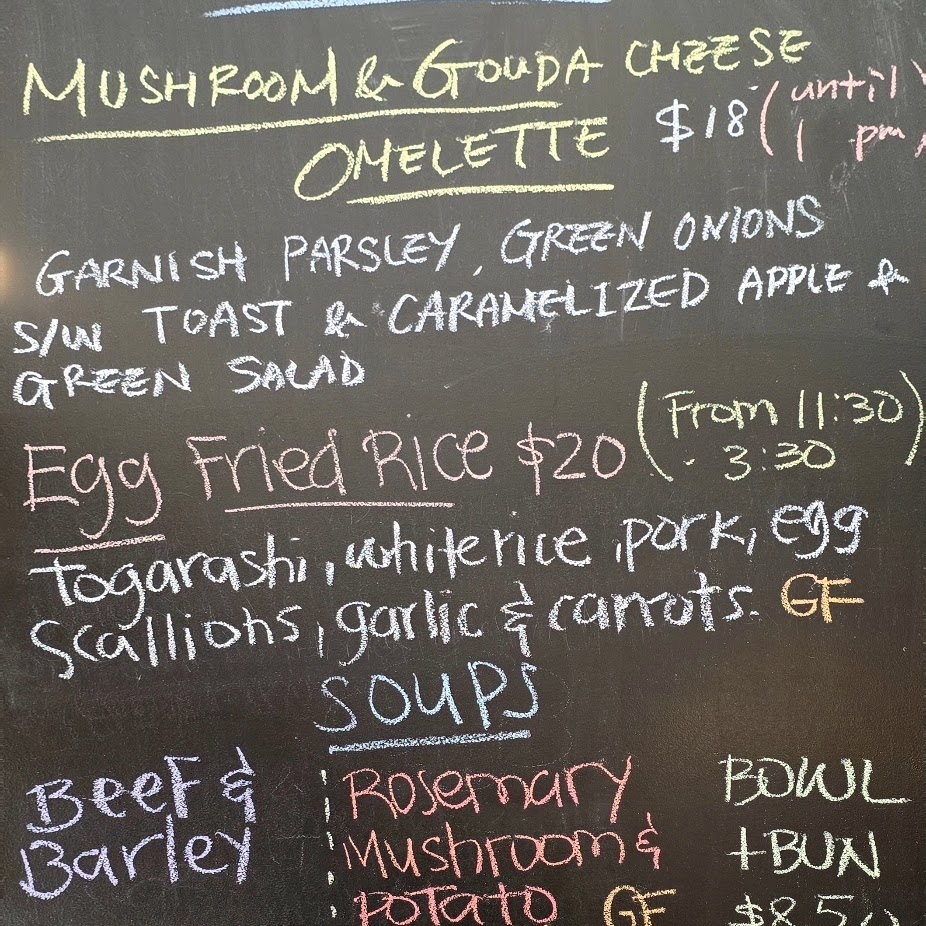 MUSHROOM & GOUDA CHEESE
OMELETTE $18 (until
1 pm)
GARNISH PARSLEY, GREEN ONIONS
S/W TOAST & CARAMELIZED APPLE &
GREEN SALAD
Egg Fried Rice $20 (From 11:30
- 3:30)
Togarashi, white rice, pork, egg
Scallions, garlic & carrots. GF
SOUPS
Beef &
Barley
Rosemary
Mushroom &
Potato GF
BOWL
+BUN
$8.50